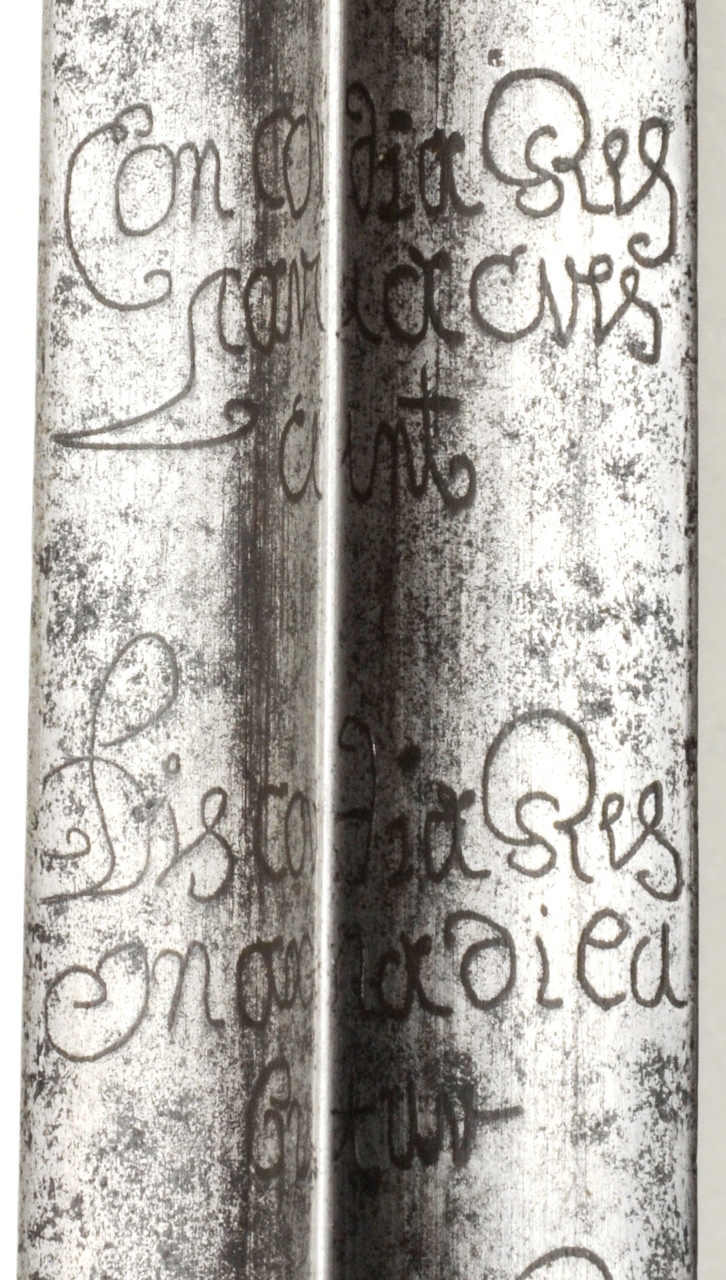 Concordia Res
parua cres
cunt
Discordia Res
magna dieu
Gntur